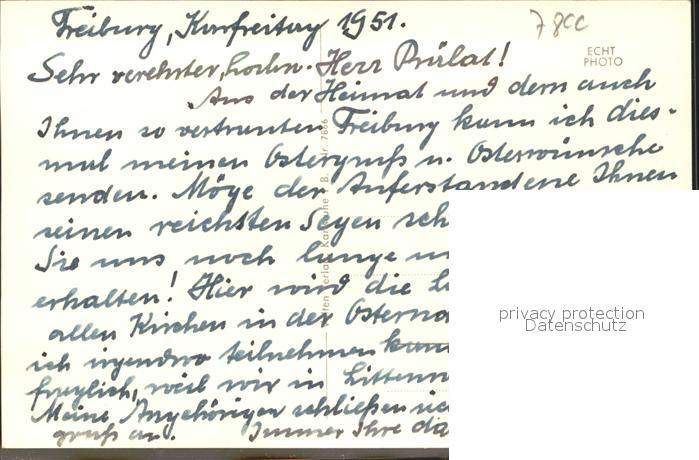 Freiburg, Karfreitag 1951.
78cc
ECHT
PHOTO
Sehr verehrter, hochw. Herr Prälat!
Aus der Heimat und dem auch
Ihnen so vertrauten Freiburg kann ich dies-
mal meinen Ostergruß u. Osterwünsche
senden. Möge der Auferstandene Ihnen
seinen reichsten Segen sch
Sie uns noch lange
erhalten! Hier wird die
allen Kirchen in der Osterna
ich irgendwo teilnehmen kann
fraglich, weil wir in Litten
Meine Angehörigen schließen sich
gruß an. Immer Ihre da
privacy protection
Datenschutz